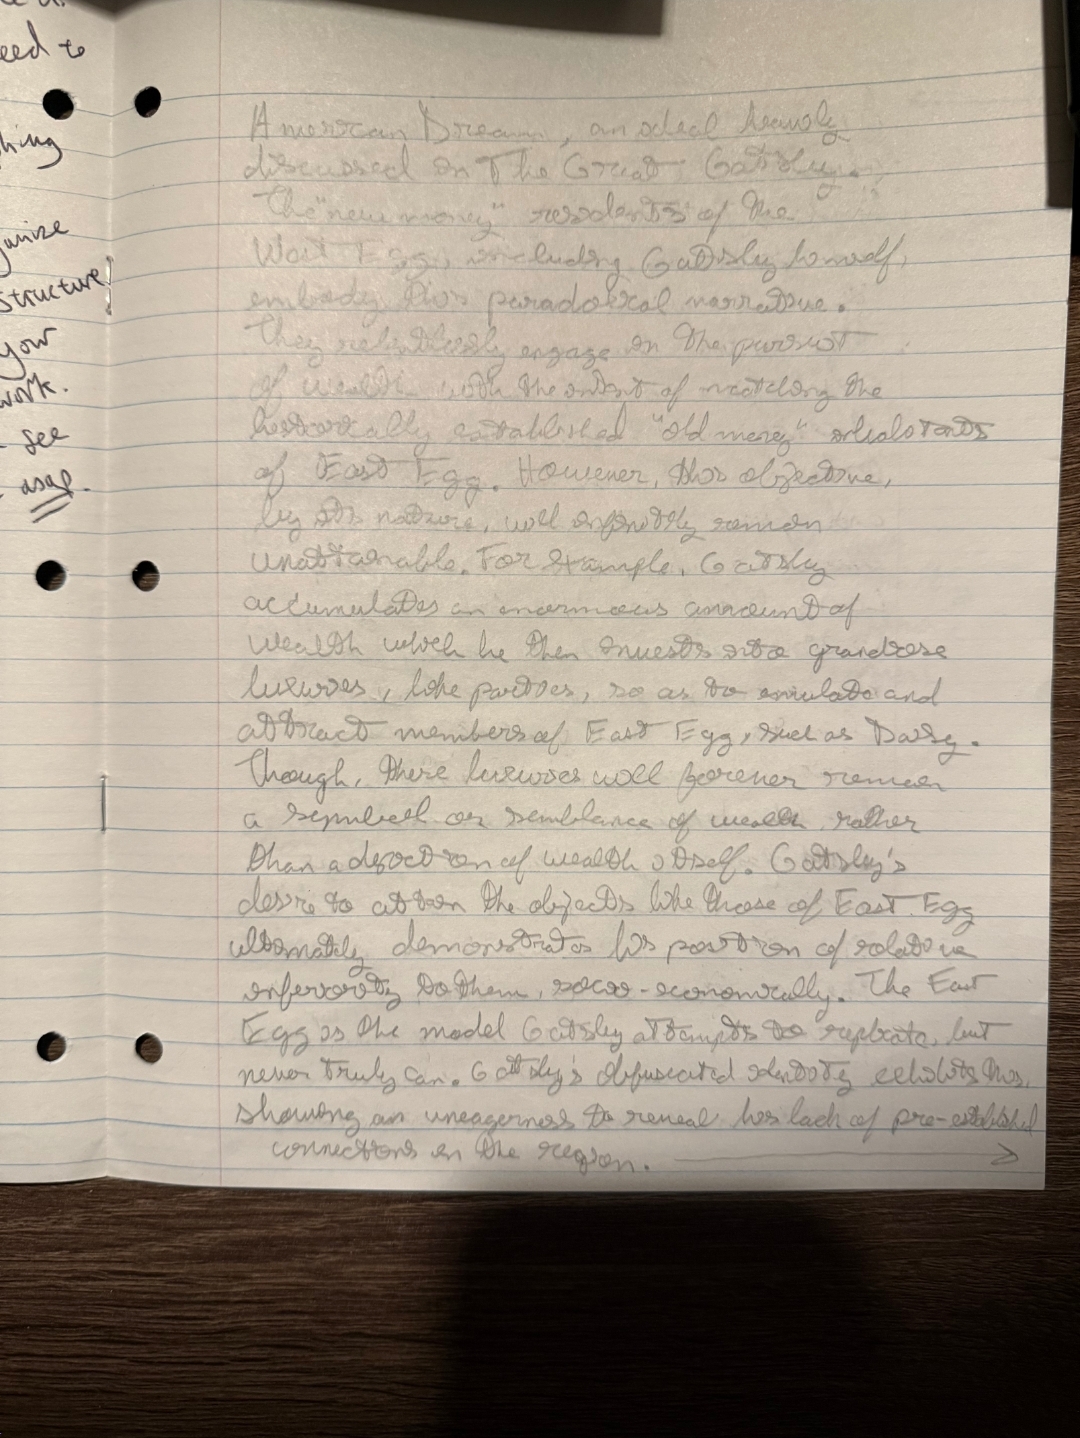 eed to
hing
ganize
structure
your
work.
see
asap.
American Dream, an ideal heavily
discussed in The Great Gatsby.
The "new money" residents of the
West Egg, including Gatsby himself,
embody this paradoxical narrative.
They relentlessly engage in the pursuit
of wealth with the intent of matching the
historically established "old money" inhabitants
of East Egg. However, this objective,
by its nature, will infinitely remain
unattainable. For example, Gatsby
accumulates an enormous amount of
wealth which he then invests into grandiose
luxuries, like parties, so as to emulate and
attract members of East Egg, such as Daisy.
Though, these luxuries will forever remain
a symbol or semblance of wealth rather
than a depiction of wealth itself. Gatsby's
desire to attain the objects like those of East Egg
ultimately demonstrates his position of relative
inferiority to them, socio-economically. The East
Egg is the model Gatsby attempts to replicate, but
never truly can. Gatsby's obfuscated identity exhibits this,
showing an uneagerness to reveal his lack of pre-established
connections in the region.